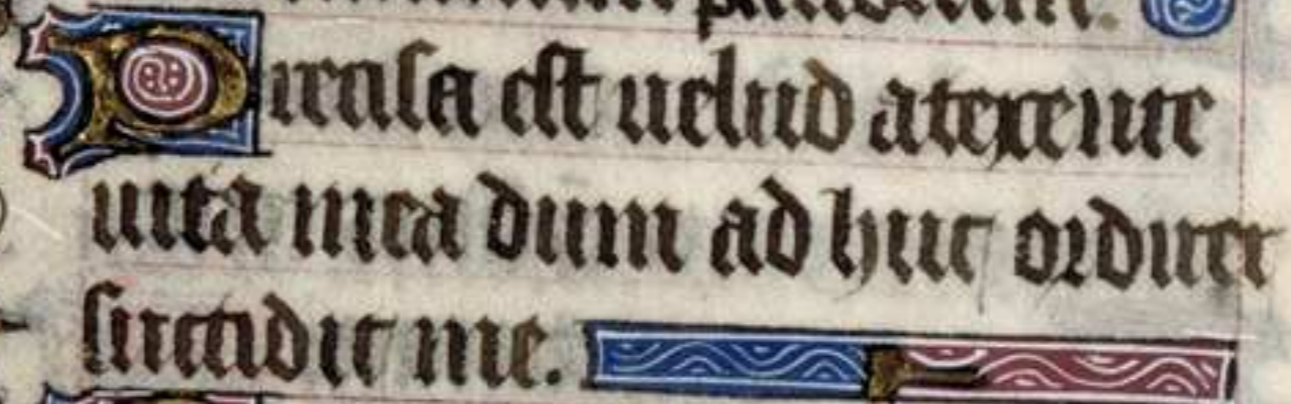 Precisa est uelud atexente
uita mea dum ad huc ordirer
succidit me.